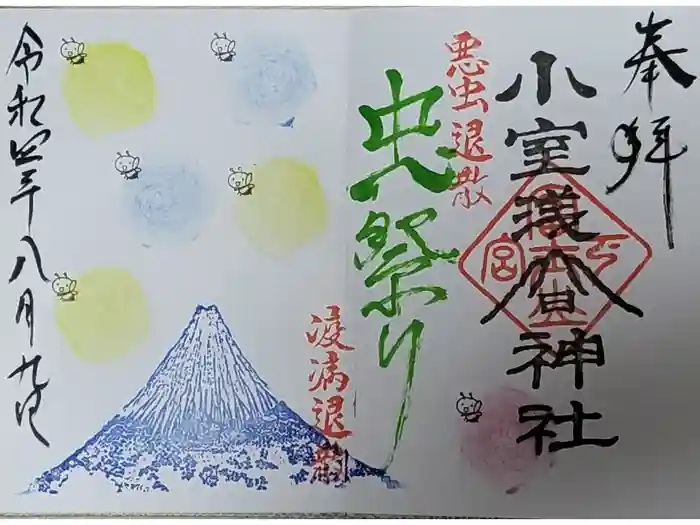 奉拝
小室浅間神社
悪虫退散
虫祭り
退散
令和四年八月九日